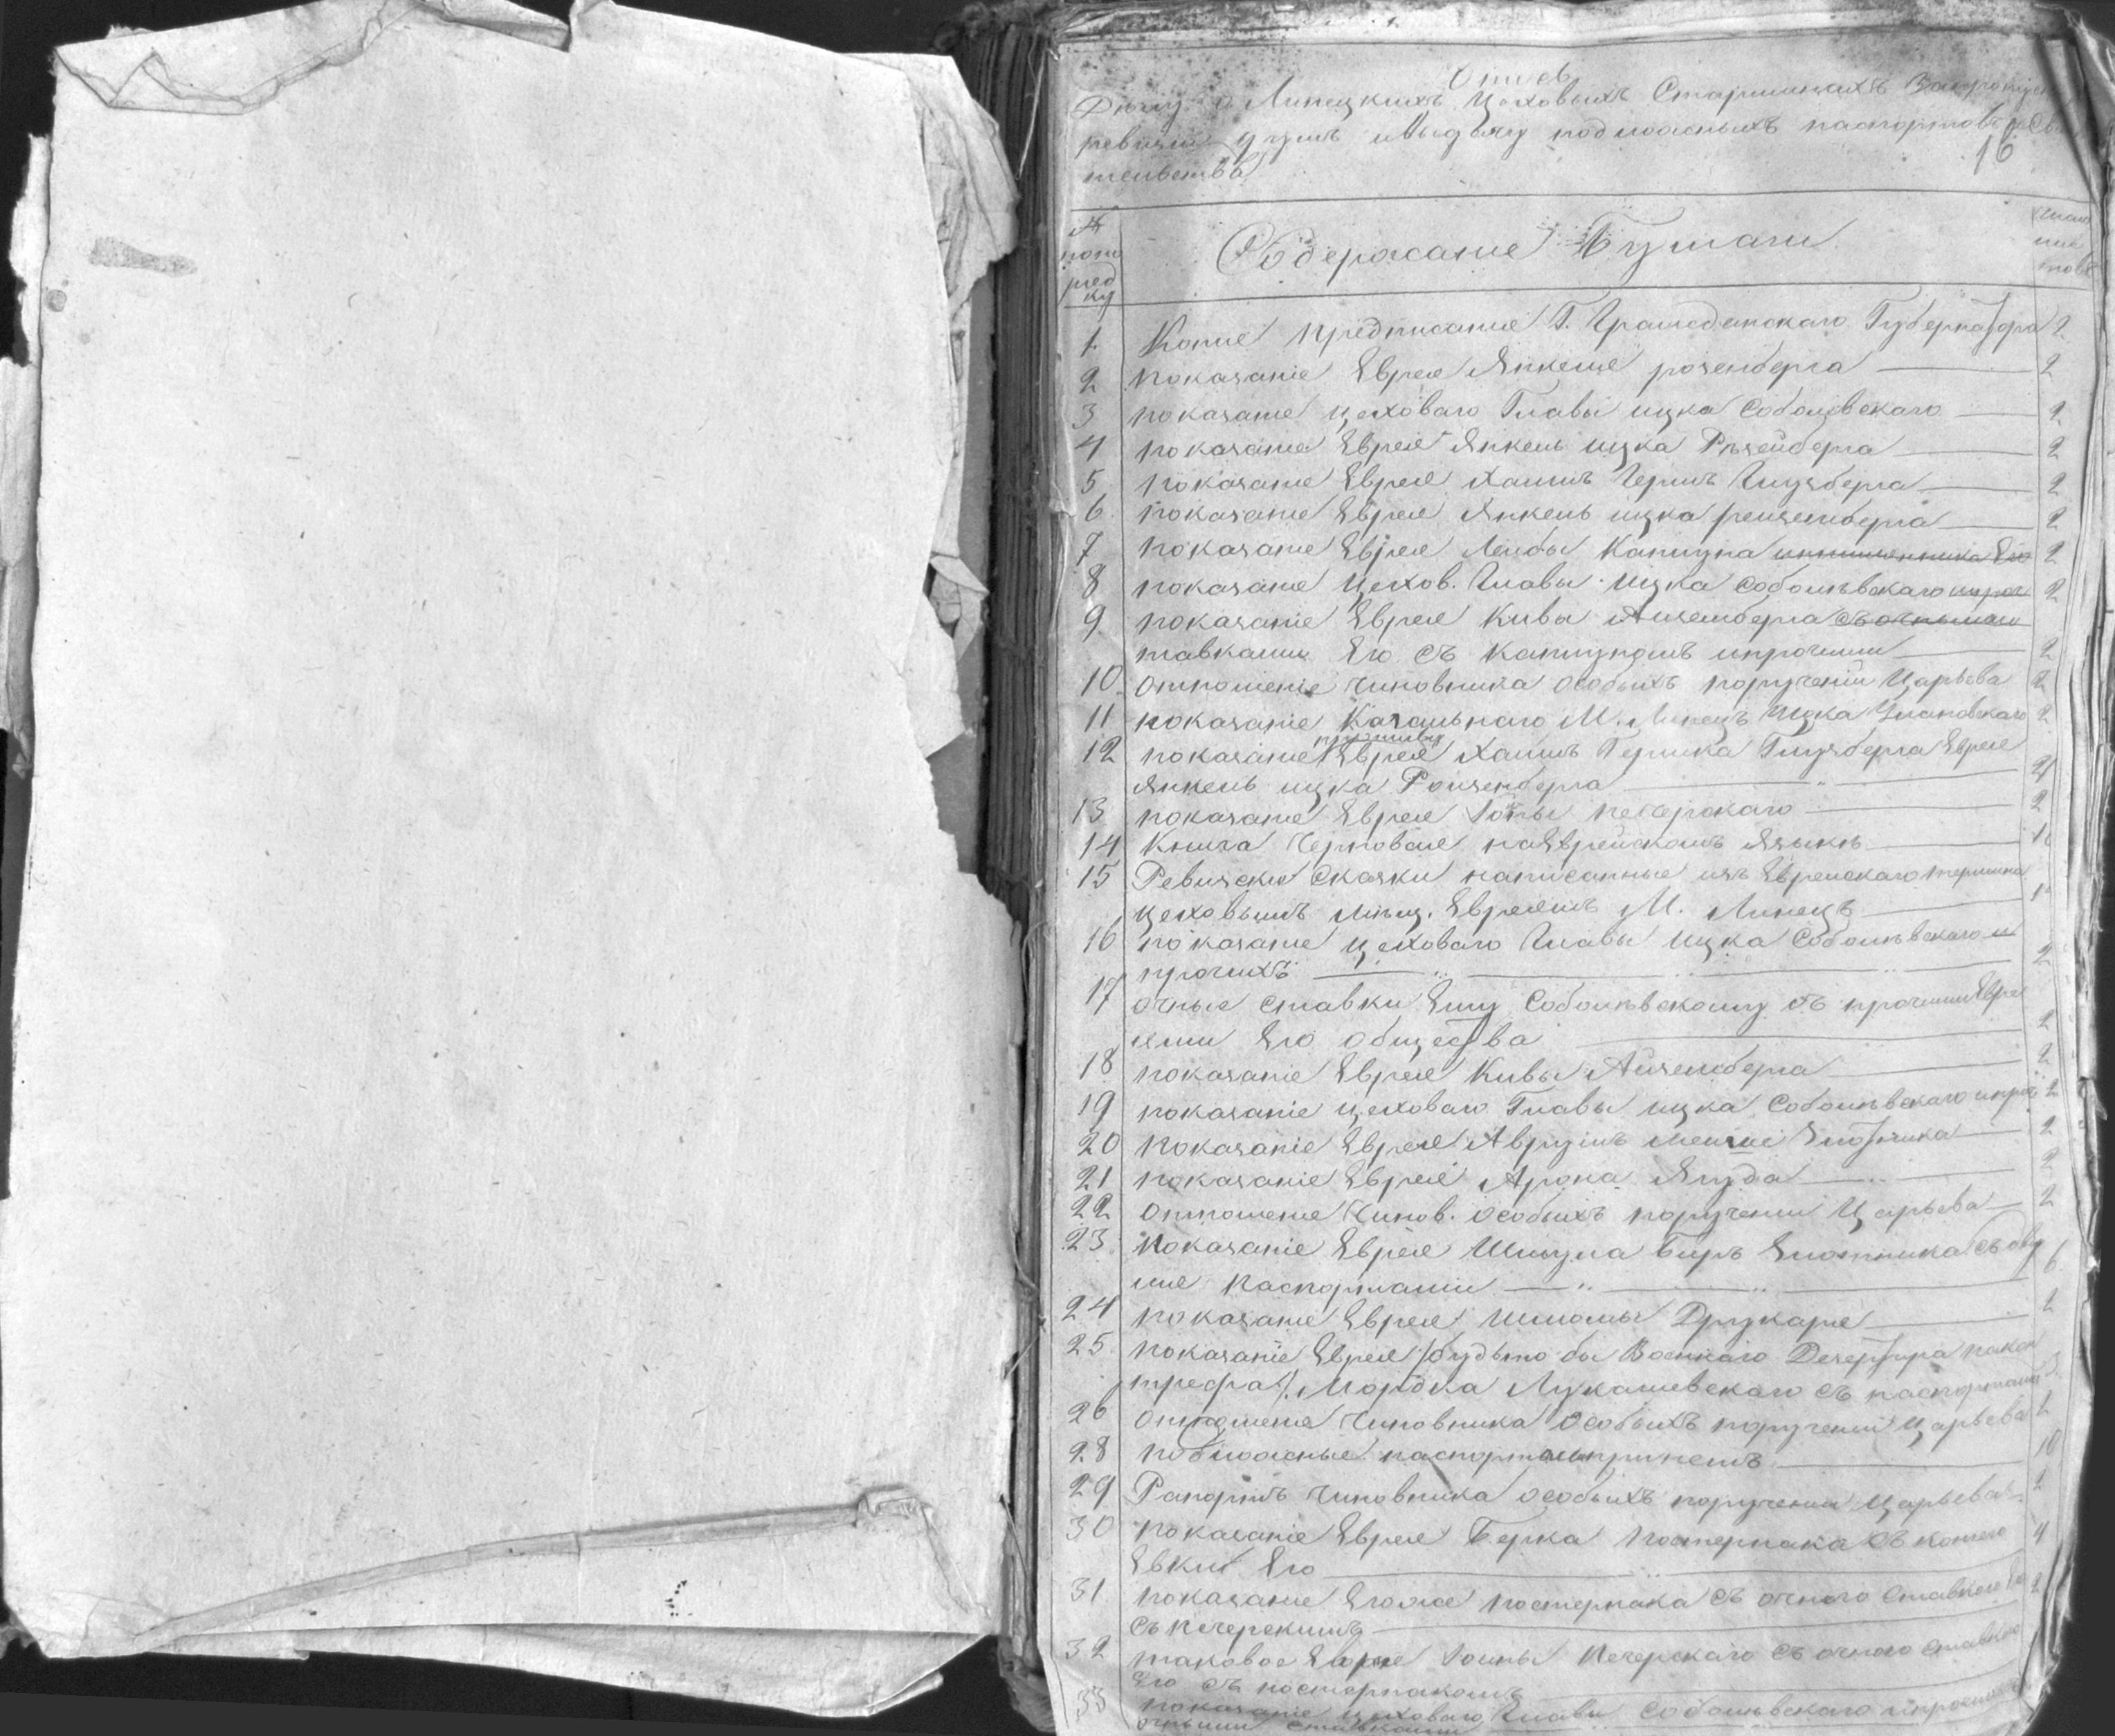 Опись
Дѣлу о Липецкихъ Цеховыхъ Старшинахъ За
ревизіи душъ и выдачу подложныхъ паспортовъ и Сви
тельствъ
16
№ по по ряд ку
Содержание Бумаги
Число лис товъ
1 Копие предписание Г. Гражданскаго Губернатора 2
2 показаніе Еврея Янкеля розенберга 2
3 показание цеховаго Главы ицка Соболевскаго 2
4 показание Еврея Янкель ицка Розенберга 2
5 показание Еврея Хаимъ Гершъ Глузберга 2
6 показание Еврея Янкель ицка 2
7 показание Еврея Лейбы Капшука 2
8 показание Цехов. Главы Ицка Соболѣвскаго ипроч 2
9 показаніе Еврея Кивы Айзенберга
тавками Его съ Капшукомъ ипрочими 2
10 отношеніе чиновника особыхъ порученій Царьева 2
11 показаніе Кагальнаго М. Липецъ Ицка Улановскаго 2
12 показание противу Еврея Хаимъ Гершка Глузберга Еврея
Янкель ицка Ройзенберга 2
13 показание Еврея Іоины печерскаго 2
14 Книга Черновая наЕврейскомъ Языкѣ
15 Ревизскія Сказки написанные изъ Еврейскаго
цеховымъ мѣщ. Евреямъ М. Липецъ
16 показание цеховаго Главы Ицка Соболѣвскаго и
прочихъ 2
17 очные ставки Ему Соболѣвскому съ прочими Евре
ями Его общества 2
18 показаніе Еврея Кивы Айзенберга 2
19 показаніе цеховаго Главы ицка Соболѣвскаго ипроч 2
20 показаніе Еврея Аврумъ 2
21 показаніе Еврея Арона Ягуда 2
22 отношение Чинов. особыхъ порученій Царьева 2
23 показаніе Еврея Шмула Беръ съ дву
мя паспортами 6
24 показание Еврея Шломы Друкаря 2
25 показаніе Еврея /будьто бы Военнаго Дезертира
трефа/. Мордка Лукашевскаго съ паспортами
26 отношение чиновника особыхъ порученій Царьева 2
28 подложные паспорты 10
29 Рапортъ чиновника особыхъ порученій Царьева 2
30 показаніе Еврея Берка постернака съ
Его 4
31 показание Егоже постернака съ очною ставкою
съ печерскимъ 2
32 таковое Еврея Іоины Печерскаго съ очною ставкою
Его съ постернакомъ
33 показание цеховаго Главы Соболѣвскаго ипрочими
очными ставками